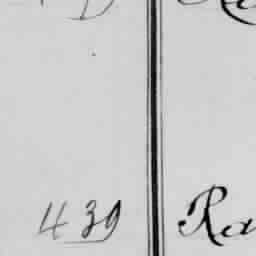 439 Ra